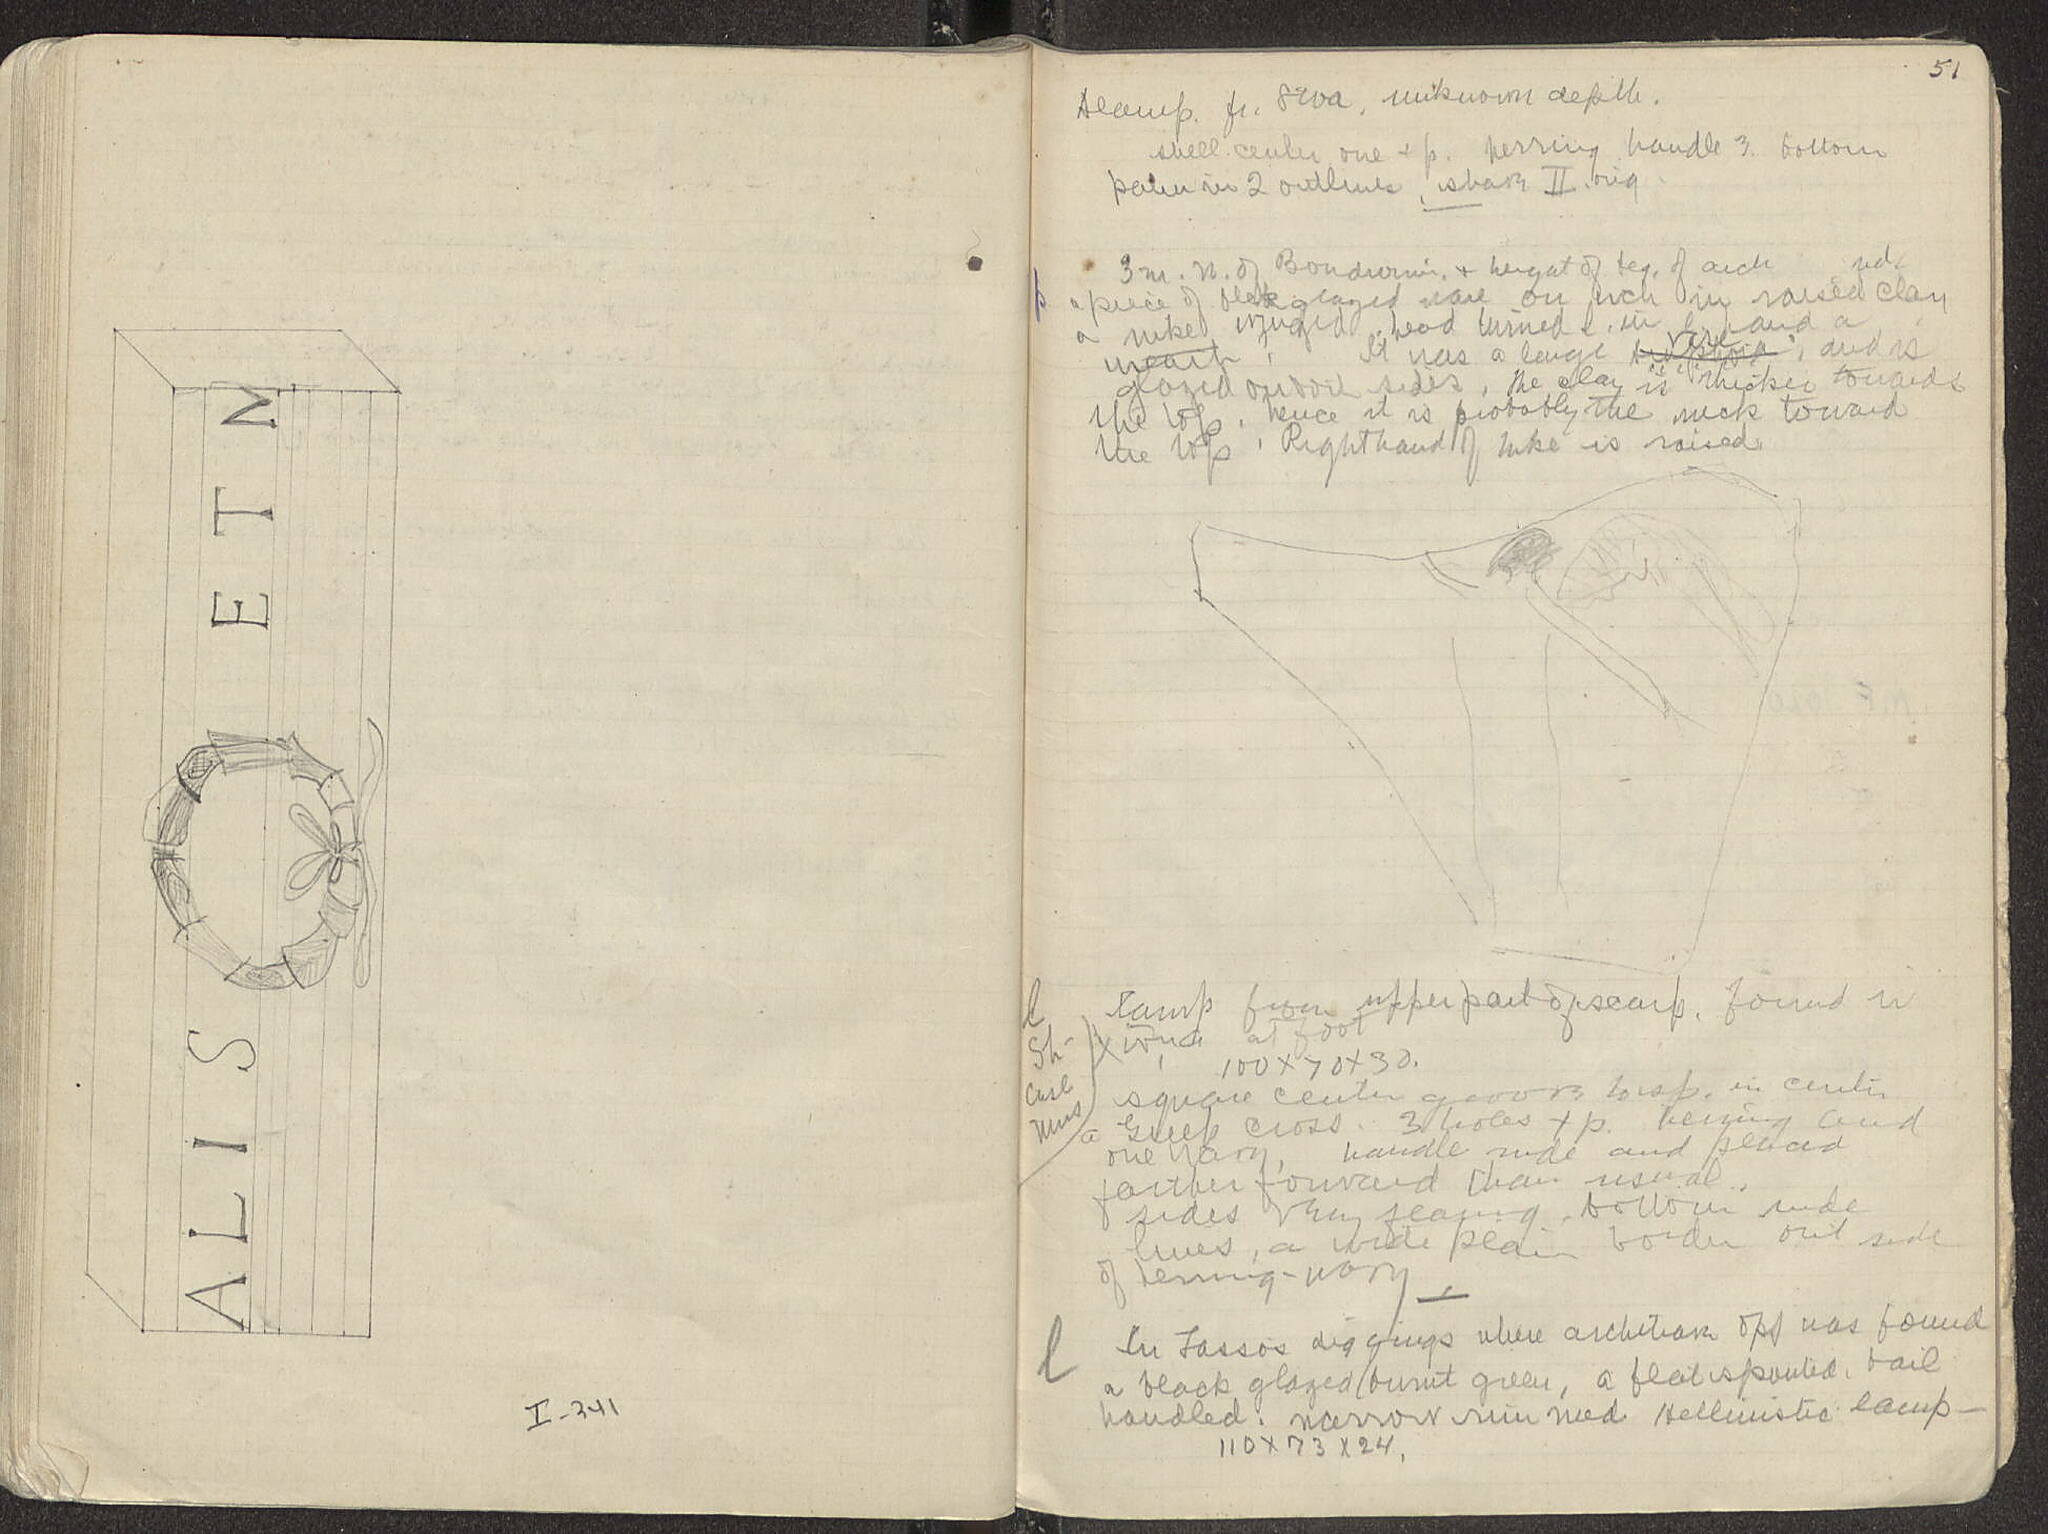 ALIS ETN
I-341
51
fr. unknown depth.
shell center one + p. herring handle 3 bottom
palm in 2 outlines, II
3 m. N. of + height of beg. of arch
p a piece of black glazed ware on wch in raised clay
a nike winged, head turned l. in hand a
wreath. It was a large vase, and is
glazed on both sides, the clay is thicker towards
the top, hence it is probably the neck toward
the top, Right hand of nike is raised.
M F
l Lamp from upper part of scarp, found in
Sh- at foot
100 x 70 x 30.
Case square center groove in center
Mus a Greek cross. 3 holes + p. herring and
one handle rude and placed
farther forward than usual.
sides very bottom rude
lines, a wide plain border out side
of herring-
l In Tassos diggings where architrave opp was found
a black glazed burnt green, a flat spouted, bail
handled. narrow rimmed Hellenistic lamp -
110 x 73 x 24.